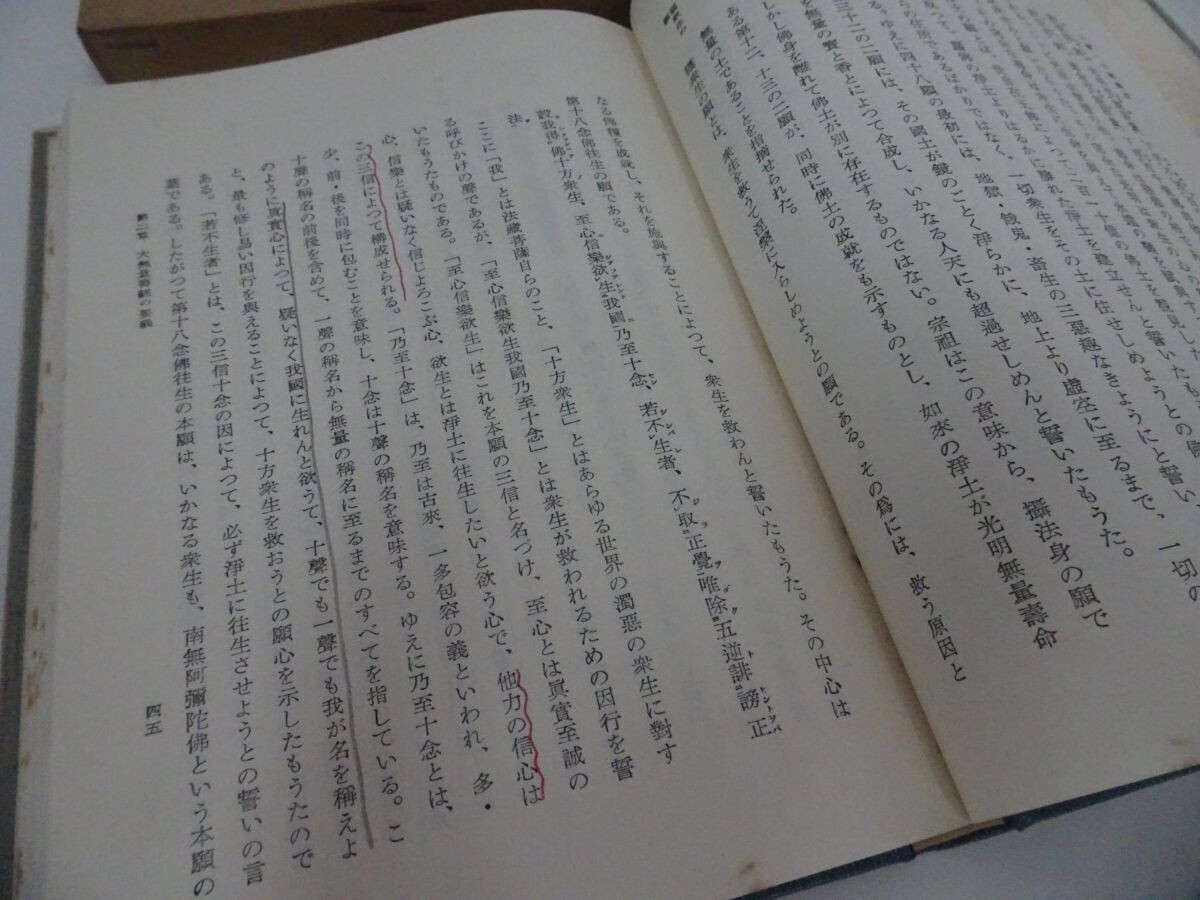 の住所であるばかりではなく、一切衆生をその土に住せしめようとの
るゆえに四十八願の最初には、地獄・餓鬼・畜生の三惡趣なきようにと誓い、
三十二の二願には、その國土が鏡のごとく淨らかに、地上より虛空に至るまで、一切の
無量の寶と香とによって合成し、いかなる人天にも超過せしめんと誓いたもうた。
しかし佛身を離れて佛土が別に存在するものではない。宗祖はこの意味から、攝法身の願で
ある第十二、十三の二願が、同時に佛土の成就をも示すものとし、如來の淨土が光明無量壽命
無量の土であることを指摘せられた。
攝衆生の願とは、衆生を救うて涅槃に入らしめようとの願である。その爲には、救う原因と
なる佛種を成就し、それを施與することによって、衆生を救わんと誓いたもうた。その中心は
第十八念佛往生の願である。
設我得佛十方衆生、至心信樂欲生我國乃至十念、若不生者、不取正覺唯除五逆誹謗正
法。
ここに「我」とは法藏菩薩自らのこと、「十方衆生」とはあらゆる世界の濁惡の衆生に對す
る呼びかけの聲であるが、「至心信樂欲生我國乃至十念」とは衆生が救われるための因行を誓
いたもうたものである。「至心信樂欲生」はこれを本願の三信と名づけ、至心とは眞實至誠の
心、信樂とは疑いなく信じよろこぶ心、欲生とは淨土に往生したいと欲う心で、他力の信心は
この三信によって構成せられる。「乃至十念」は、乃至は古來、一多包容の義といわれ、多・
少、前・後を同時に包むことを意味し、十念は十聲の稱名を意味する。ゆえに乃至十念とは、
十聲の稱名の前後を含めて、一聲の稱名から無量の稱名に至るまでのすべてを指している。こ
のように眞實心によって、疑いなく我國に生れんと欲うて、十聲でも一聲でも我が名を稱えよ
と、最も修し易い因行を與えることによって、十方衆生を救おうとの願心を示したもうたので
ある。「若不生者」とは、この三信十念の因によって、必ず淨土に往生させようとの誓いの言
葉である。したがって第十八念佛往生の本願は、いかなる衆生も、南無阿彌陀佛という本願の
第二章 大無量壽經の要義
四五